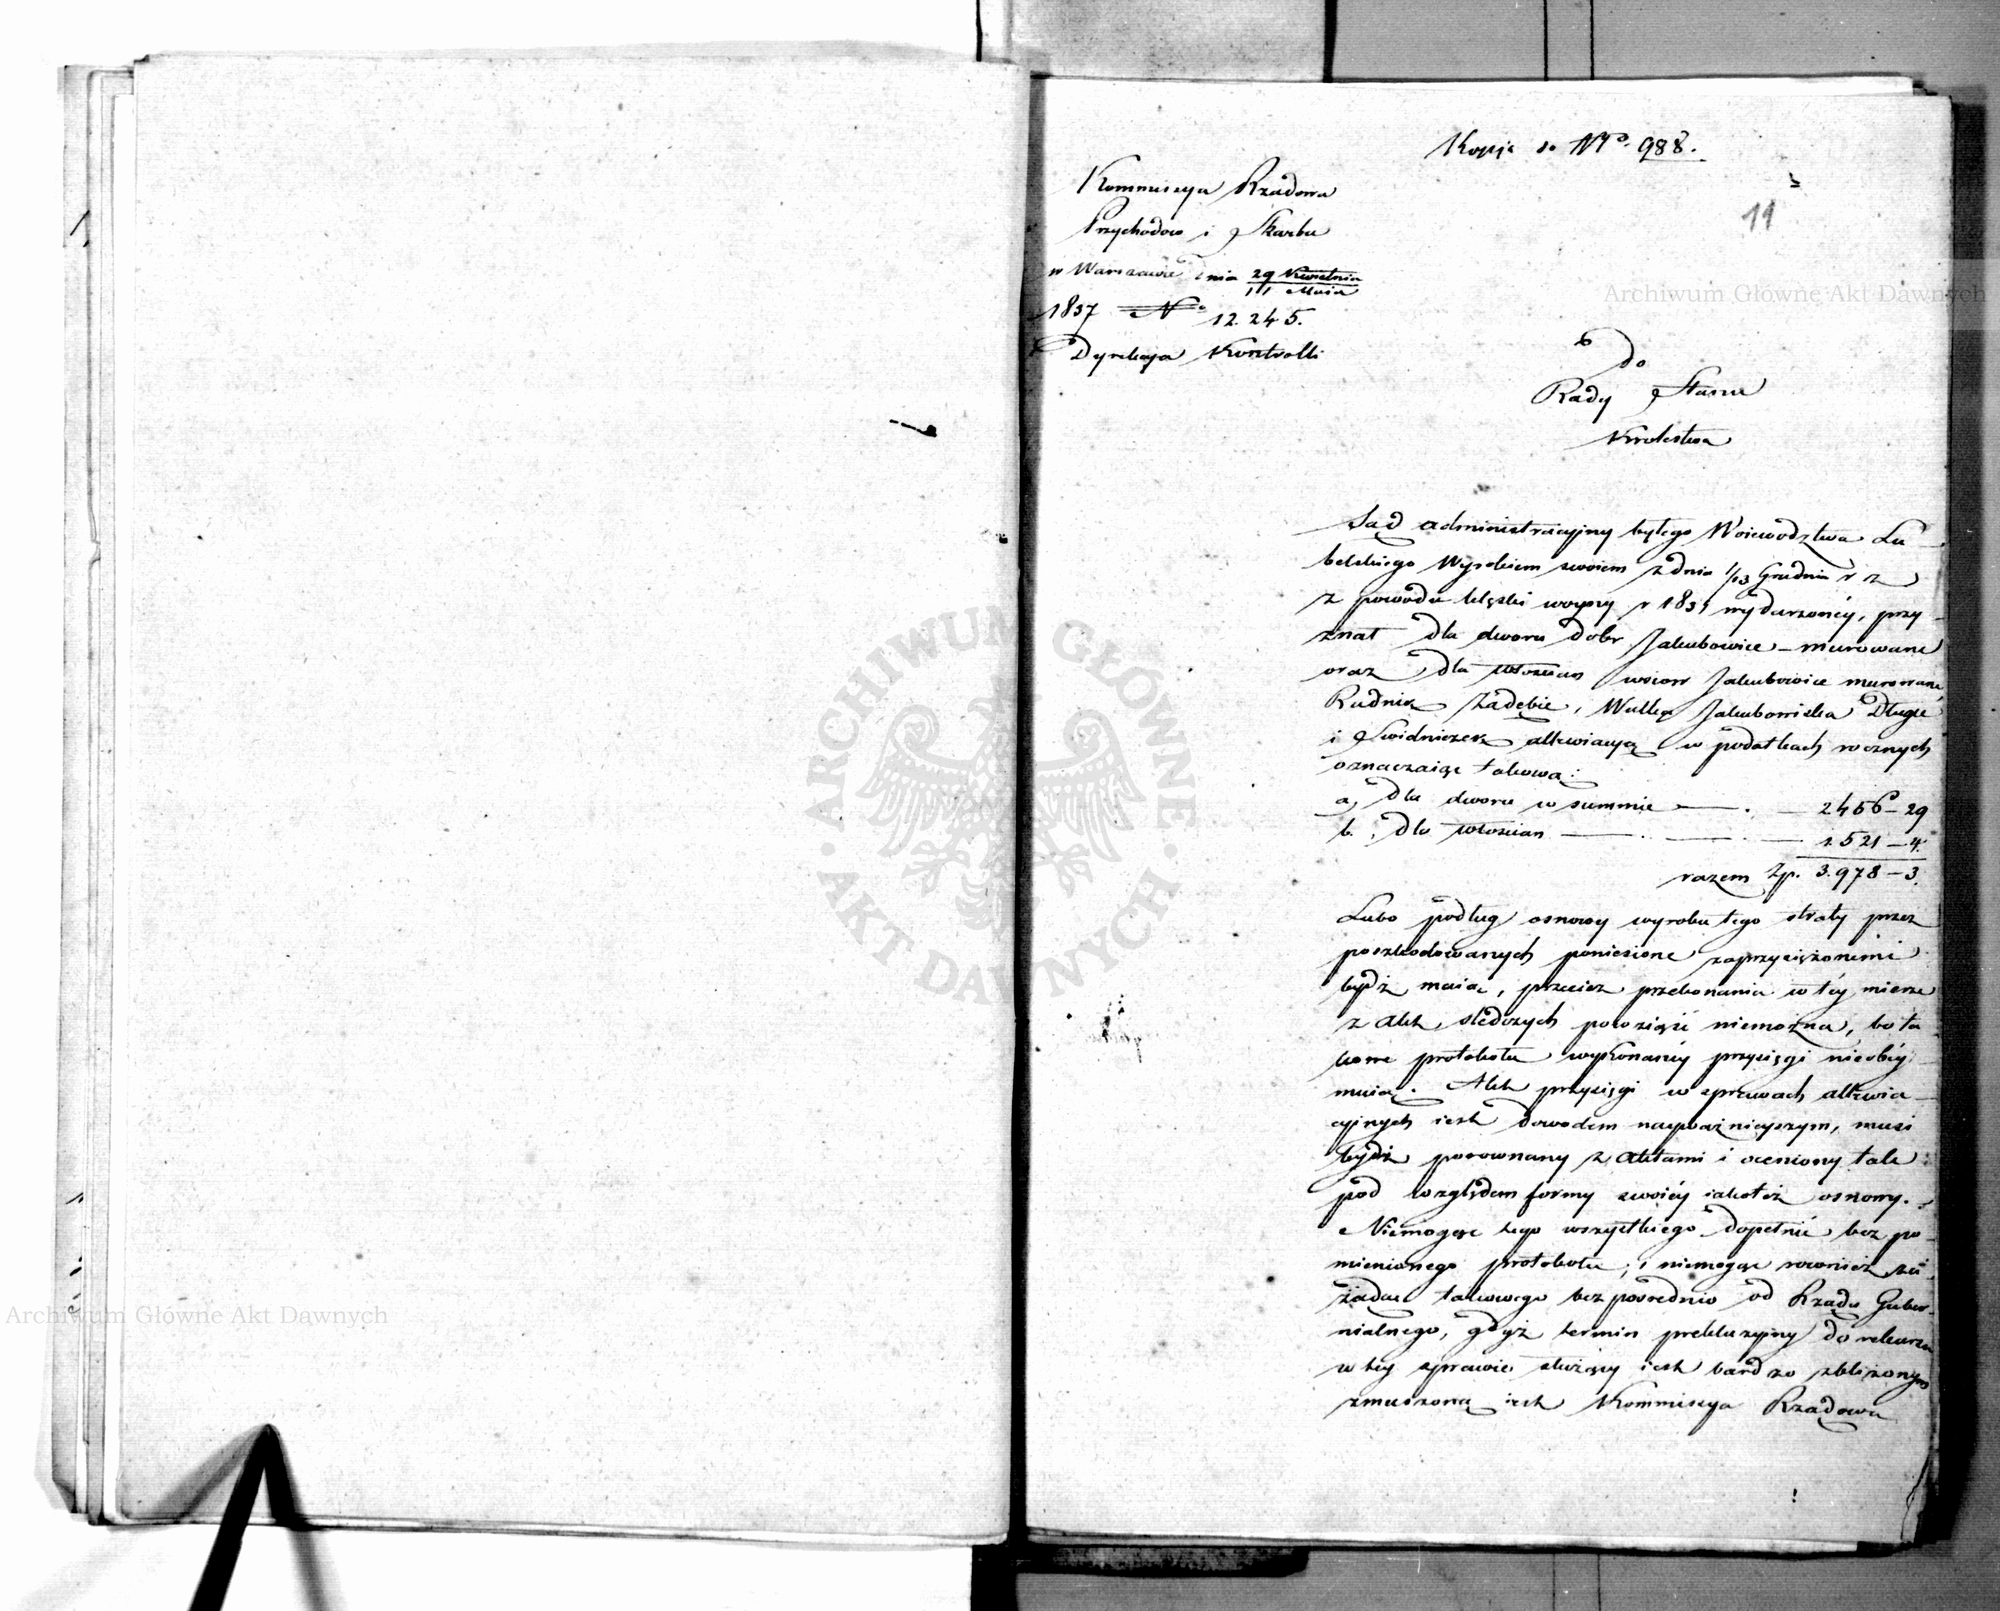 Kopija do Nro. 988.
11
Kommissya Rządowa
Przychodow i Skarbu
w Warszawie dnia 29 Kwietnia
11 Maia
1837 No 12.245.
Dyrekcya Kontrolli
do
Rady Stanu
Krolestwa
Sąd administracyjny byłego Woiewodztwa Lu-
belskiego Wyrokiem swoiem z dnia 1/13 Grudnia r z
z powodu klęski woyny r 1831 wydarzonéy, przy-
znał dla dworu dobr Jakubowice-murowane
oraz dla włościan wsiow Jakubowice murowane
Rudnik Zadębie, Wulka Jakubowicka Długie
i Swidniczek allewiacyą w podatkach rocznych
oznaczaiąc takową:
a, dla dworu w summie 2456-29
b, dla włościan 1.521-4.
razem Zp. 3.978-3.
Lubo podług osnowy wyroku tego straty przez
poszkodowanych poniesione zaprzysiężonemi
bydź maią, przecież przekonania w téy mierze
z akt śledczych powziąść niemożna, bo ta
kowe protokołu wykonanéy przysięgi nieobéy
muią. Akt przysięgi w sprawach allewia-
cyjnych iest dowodem nayważnieyszym, musi
bydź porownany z aktami i oceniony tak
pod względem formy swoiéy iakoteż osnowy.
Niemogąc tego wszystkiego dopełnić bez po-
mienionego protokołu, i niemogąc rownież za-
żądać takowego bezpośrednio od Rządu Guber-
nialnego, gdyż termin prekluzyjny do rekursu
w téy sprawie służący iest bardzo zbliżonym
zmuszoną iest Kommissya Rządowa
Archiwum Główne Akt Dawnych
Archiwum Główne Akt Dawnych
ARCHIWUM GŁÓWNE
AKT DAWNYCH